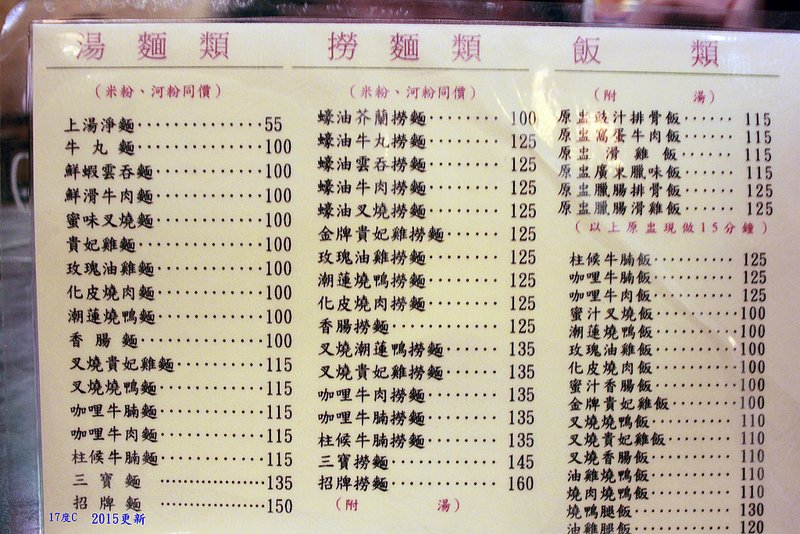 湯麵類
(米粉、河粉同價)
上湯淨麵···············55
牛丸麵···············100
鮮蝦雲吞麵···············100
鮮滑牛肉麵···············100
蜜味叉燒麵···············100
貴妃雞麵···············100
玫瑰油雞麵···············100
化皮燒肉麵···············100
潮蓮燒鴨麵···············100
香腸麵···············100
叉燒貴妃雞麵···············115
叉燒燒鴨麵···············115
咖哩牛腩麵···············115
咖哩牛肉麵···············115
柱候牛腩麵···············115
三寶麵···············135
招牌麵···············150
撈麵類
(米粉、河粉同價)
蠔油芥蘭撈麵·········100
蠔油牛丸撈麵·········125
蠔油雲吞撈麵·········125
蠔油牛肉撈麵·········125
蠔油叉燒撈麵·········125
金牌貴妃雞撈麵·········125
玫瑰油雞撈麵·········125
潮蓮燒鴨撈麵·········125
化皮燒肉撈麵·········125
香腸撈麵·········125
叉燒潮蓮鴨撈麵·········135
叉燒貴妃雞撈麵·········135
咖哩牛肉撈麵·········135
咖哩牛腩撈麵·········135
柱候牛腩撈麵·········135
三寶撈麵·········145
招牌撈麵·········160
(附湯)
飯類
(附湯)
原盅豉汁排骨飯······115
原盅窩蛋牛肉飯······115
原盅滑雞飯······115
原盅廣東臘味飯······115
原盅臘腸排骨飯······125
原盅臘腸滑雞飯······125
(以上原盅現做15分鐘)
柱候牛腩飯·········125
咖哩牛腩飯·········125
咖哩牛肉飯·········125
蜜汁叉燒飯·········100
潮蓮燒鴨飯·········100
玫瑰油雞飯·········100
化皮燒肉飯·········100
蜜汁香腸飯·········100
金牌貴妃雞飯·········100
叉燒燒鴨飯·········110
叉燒貴妃雞飯·········110
叉燒香腸飯·········110
油雞燒鴨飯·········110
燒肉燒鴨飯·········110
燒鴨腿飯·········130
油雞腿飯·········120
17度C 2015更新